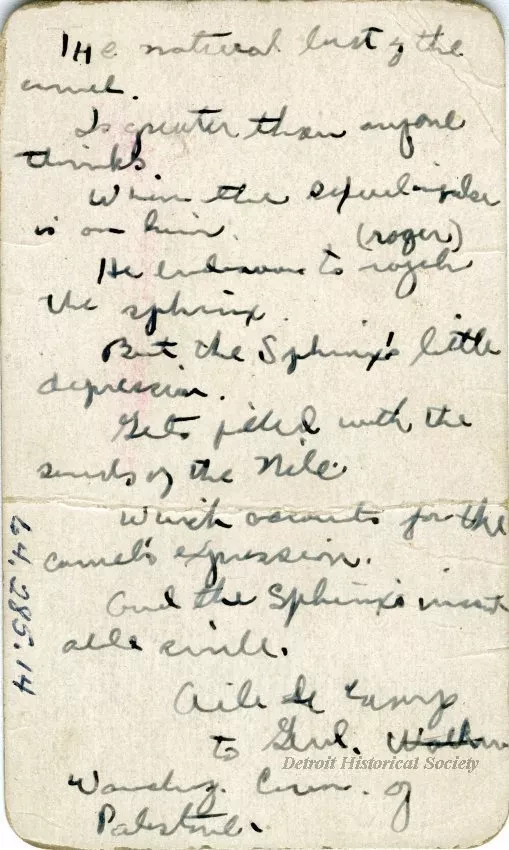 THe natural lust of the
camel.
Is greater than anyone
thinks
When the sexual impulse
is on him. (roger)
He endeavors to rogeh
the sphinx.
But the Sphinx's little
depression.
Gets filled with the
sands of the Nile.
Which accounts for the
camel's expression.
And the Sphinx's inscrut
able smile.
Aide de Camp
to Genl.
Detroit Historical Society
Comm. of
Palestine.
64.285.14